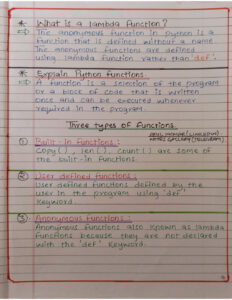 * What is a lambda function?
⇒ The anonymous function in python is a
function that is defined without a name
The anonymous functions are defined
using lambda function rather than 'def'.
* Explain Python functions
⇒ A function is a selection of the program
or a block of code that is written
once and can be executed whenever
required in the program.
Three types of functions
① Built-In functions:
Copy(), len(), Count() are some of
the built-in functions.
② User defined functions:
User defined functions defined by the
user in the program using 'def'
keyword.
③ Anonymous functions:
Anonymous functions also known as lambda
functions because they are not declared
with the 'def' keyword.